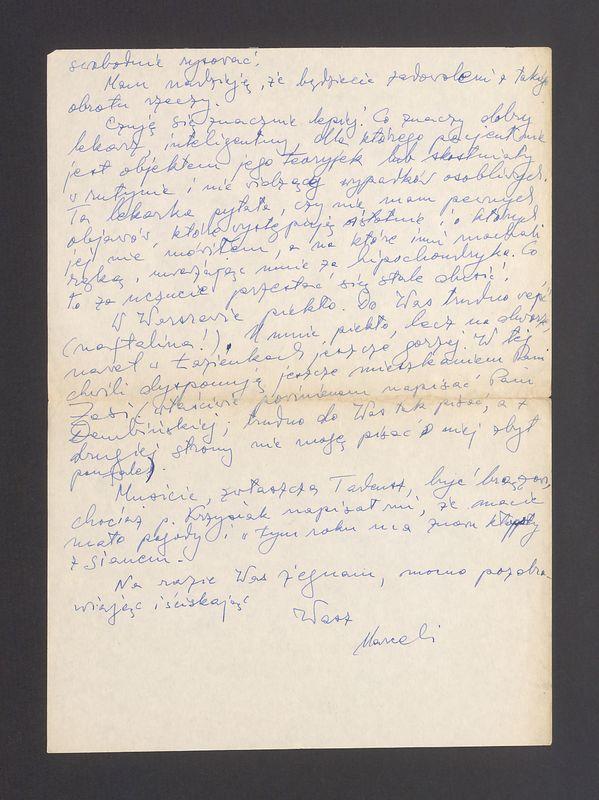 swobodnie rysować.
Mam nadzieję, że będziecie zadowoleni z takiego
obrotu rzeczy.
Czuję się znacznie lepiej. Co znaczy dobry
lekarz, inteligentny, dla którego pacjent nie
jest objektem jego teoryjek lub skostniały
w rutynie i nie widzący wypadków osobliwych.
Ta lekarka pytała, czy nie mam pewnych
objawów, które występują istotnie, i o których
jej nie mówiłem, a na które inni machali
ręką, uważając mnie za hipochondryka. Co
to za uczucie przestać się stale dusić!
W Warszawie piekło. Do Was trudno
(naftalina!). U mnie piekło, lecz na dworze,
nawet w Łazienkach jeszcze gorzej. W tej
chwili dysponuję jeszcze mieszkaniem Pani
Zosi (właściwie powinienem napisać Pani
Dembińskiej; trudno do Was tak pisać, a z
drugiej strony nie mogę pisać o niej zbyt
poufale).
Musicie, zwłaszcza Tadeusz, być
chociaż p. Krzysiak napisał mi, że macie
mało pogody i w tym roku ma znów kłopoty
z sianem.
Na razie Was żegnam, mocno pozdra-
wiając i ściskając
Wasz
Marceli